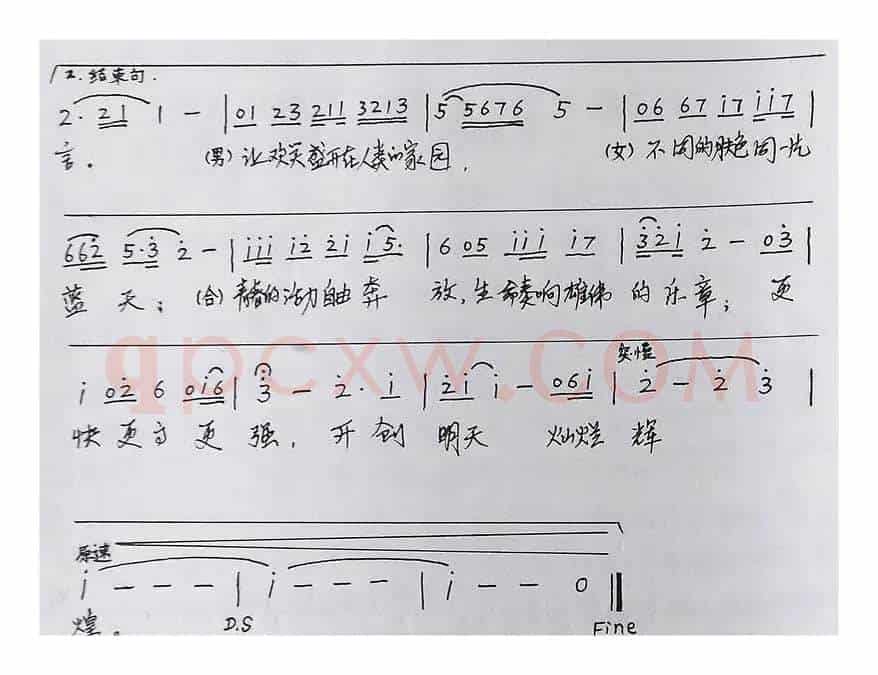 2. 结束句.
2· 21 1 - | 01 23 211 3213 | 5 5676 5 - | 06 67 i7 ii7 |
言。 (男) 让欢笑盛开在人类的家园, (女) 不同的肤色同一片
662 5·3 2 - | iii i2 2i i5· | 6 05 iii i7 | 32i 2 - 03 |
蓝天; (合) 青春的活力自由奔放,生命奏响雄伟的乐章; 更
qpcxw.com
突慢
i 02 6 0i6 | 3 - 2· i | 2i i - 06i | 2 - 2 3 |
快更高更强, 开创明天 灿烂辉
原速
i - - - | i - - - | i - - 0 ||
煌。 D.S Fine